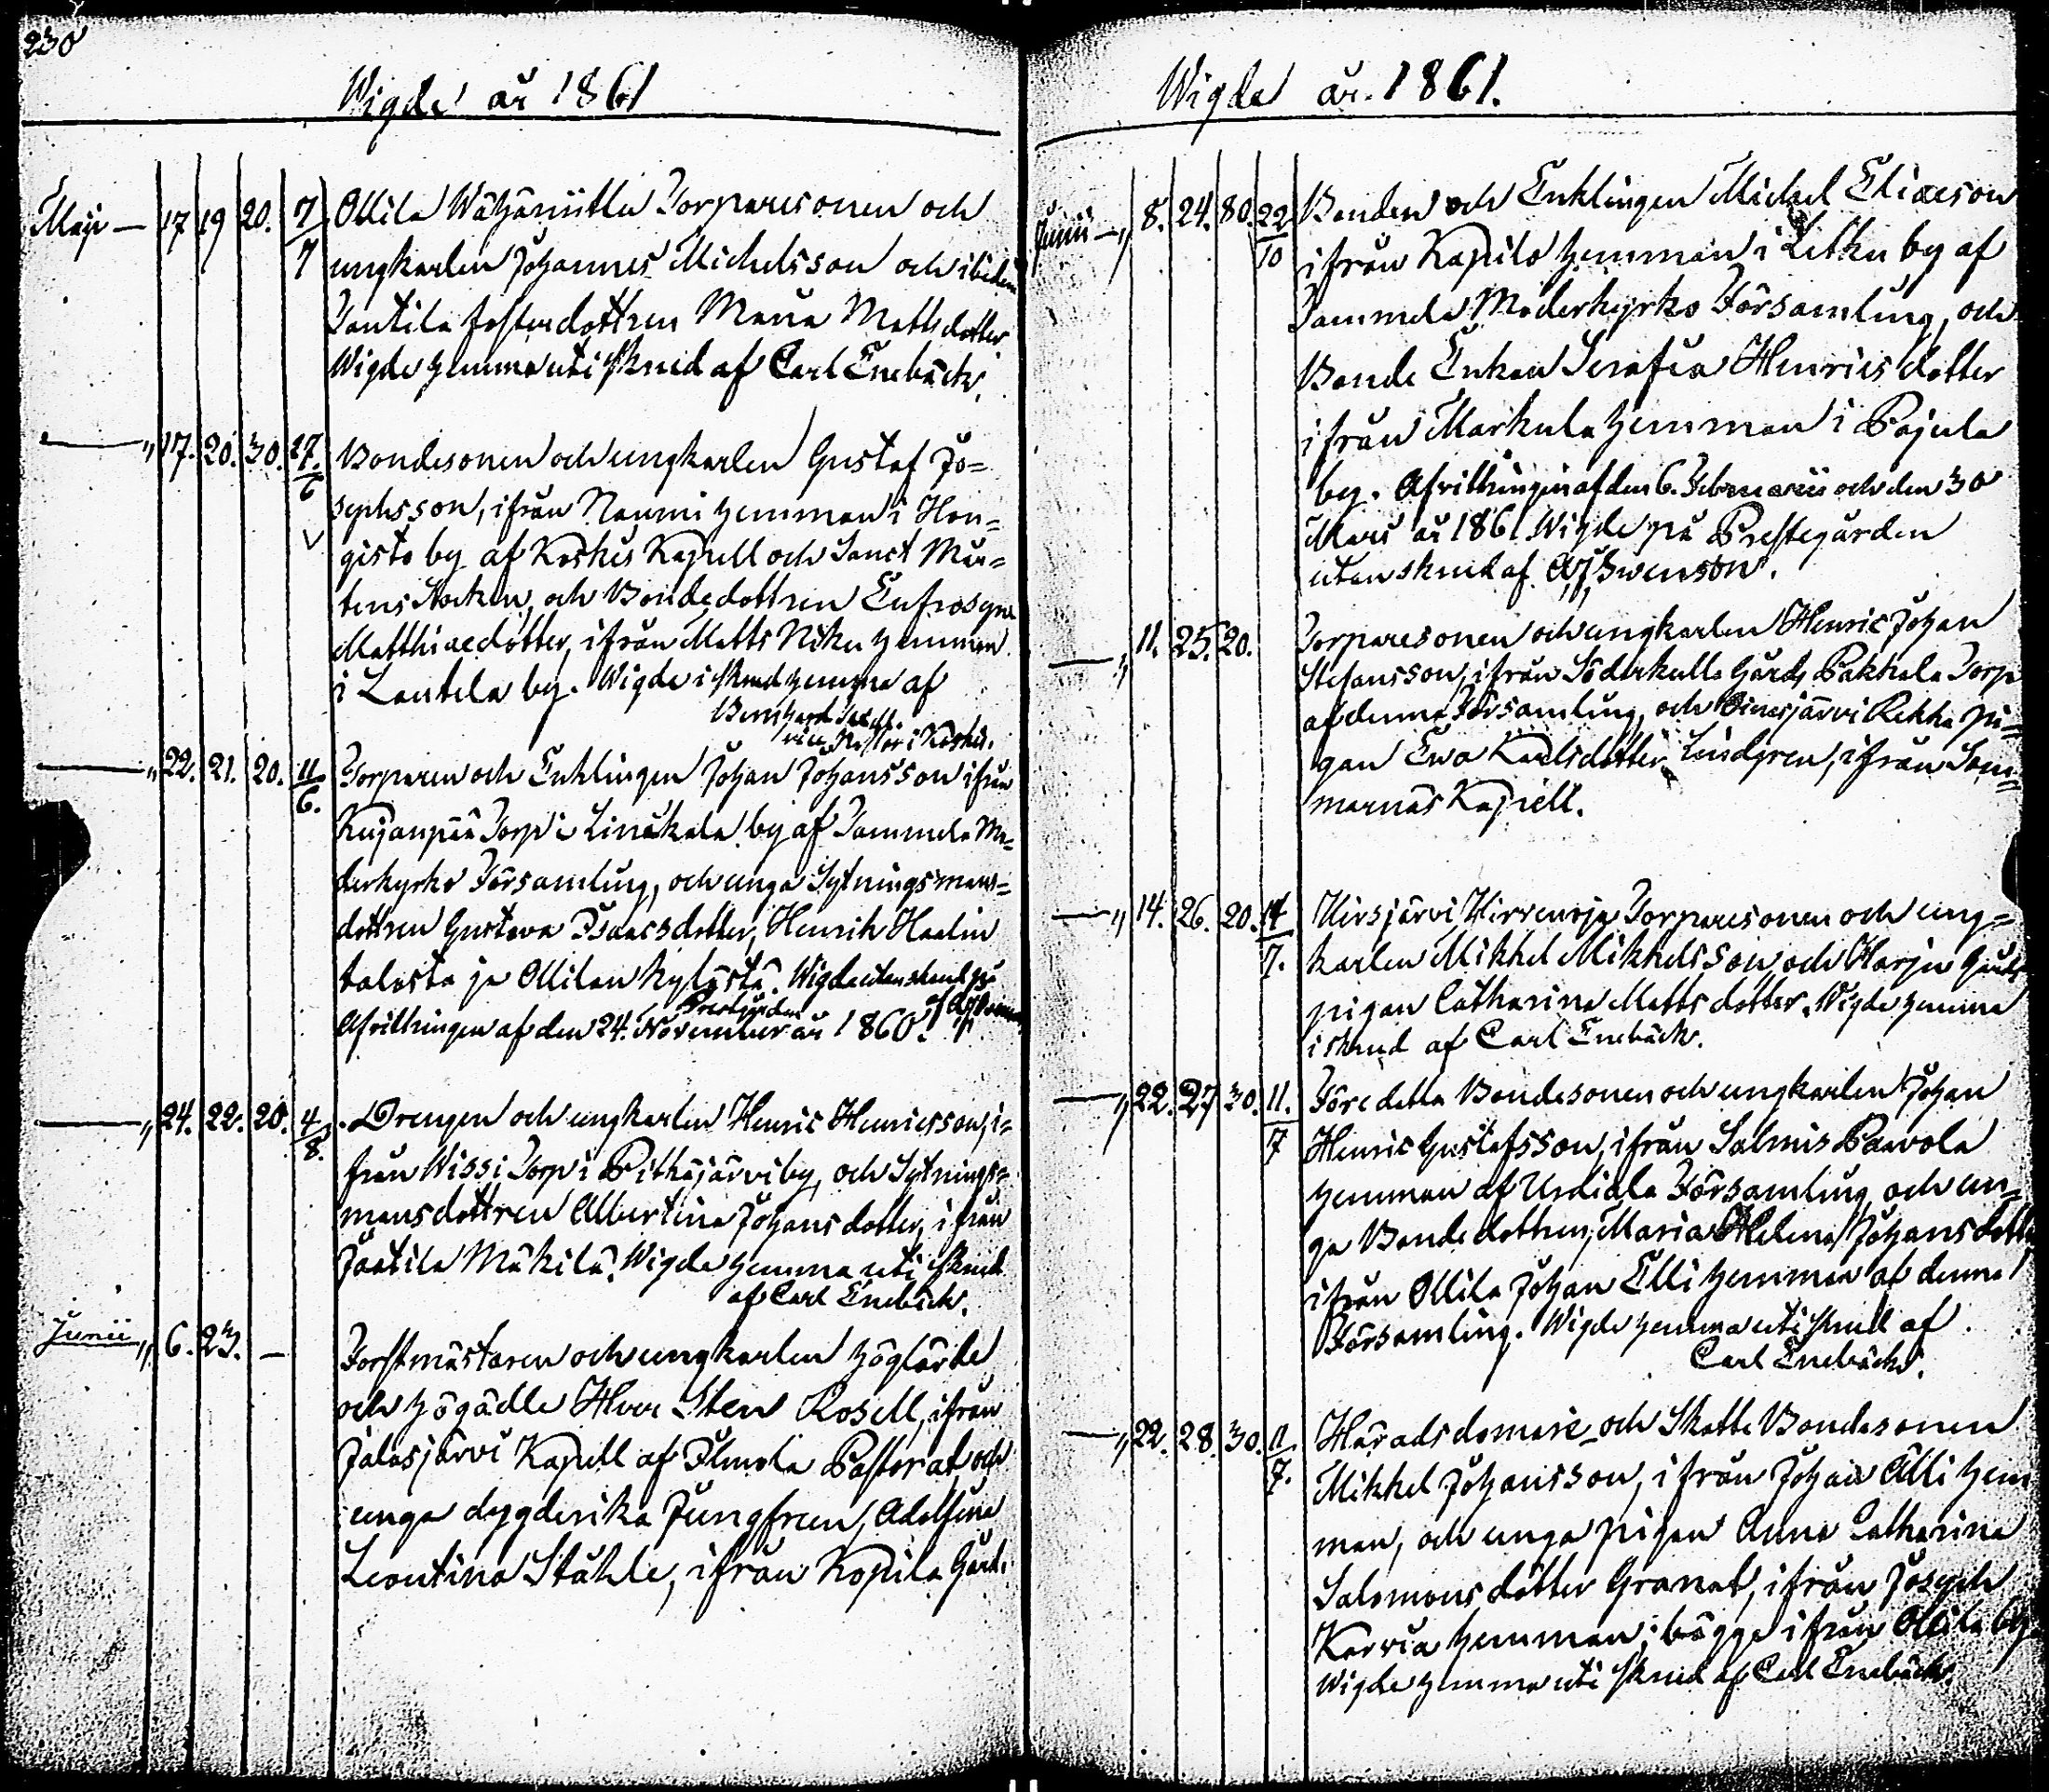 230
Wigde år 1861
Maji — 17 19 20. 7/7 Ollila Wähäniittu Torparesonen och
ungkarlen Johannes Michelsson och ibidem
Jantila fosterdottren Maria Mattsdotter
Wigde hemma uti skrud af Carl Enebäck.
— " 17. 20. 30. 27./6 Bondesonen och ungkarlen Gustaf Jo=
sephsson, ifrån Naumi hemman i Hon=
gisto by af Koskis Kapell och Sanct Mår=
tens Socken, och Bondedottren Eufrosyna
Matthiaedotter, ifrån Matts Niku hemman
i Lautela by. Wigde i skrud hemma af
Bernhard
vice Pastor i Koskis.
— " 22. 21. 20. 11/6. Torparen och Enklingen Johan Johansson ifrån
Kujanpää Torp i Linikkala by af Tammela Mo=
derkyrko Församling, och unga Sytningsmans=
dottren Gustava Isaacsdotter, Henrik Haalin
talosta ja Ollilan kylästä. Wigde utan skrud på
Prestgården af
Afvittringen af den 24. November år 1860.
— " 24. 22. 20. 4/8. Drengen och ungkarlen Henric Henricsson, i=
från Wissi Torp i Pitkäjärvi by, och Sytnings=
mansdottren Albertina Johansdotter, ifrån
Jaatila Mäkilä. Wigde hemma uti skrud
af Carl Enebäck.
Junii " 6. 23. — Forstmästaren och ungkarlen höglärde
och högädle Herr Sten Rosell, ifrån
Jalasjärvi Kapell af Ilmola Pastorat och
unga dygderika Jungfrun, Adolfina
Leontina Ståhle, ifrån Kopila Gård.
Wigde år. 1861.
Junii — " 8. 24. 80. 22/10 Bonden och Enklingen Michael Eliaeson
ifrån Kapilo hemman i Letku by af
Tammela Moderkyrko Församling, och
Bonde Enkan Serafia Henricsdotter
ifrån Markula hemman i Pajula
by. Afvittringen af den 6. Februarii och den 30
Mars år 1861. Wigde på Prestegården
utan skrud af Swenson.
— " 11. 25. 20. Torparesonen och ungkarlen Henric Johan
Stefansson, ifrån Söderkulla Gårds Pakkala Torp
af denna Församling, och Oinasjärvi Rekka pi=
gan Ewa Karlsdotter Lindgren, ifrån Som=
marnäs Kapell.
— " 14. 26. 20. 14/7. Hirsjärvi, Hirrenoja Torparesonen och ung=
karlen Mikkel Mikkelsson, och Harju Gårds
pigan Catharina Mattsdotter. Wigde hemma
i skrud af Carl Enebäck.
— " 22. 27 30. 11./7 Före detta Bondesonen och ungkarlen Johan
Henric Gustafsson, ifrån Salmis Paavola
hemman af Urdiala Församling, och un=
ga Bondedottren, Maria Helena Johansdotter
ifrån Ollila Johan Elli hemman af denna
Församling. Wigde hemma uti skrud af
Carl Enebäck.
— " 22. 28. 30. 11/7. Häradsdomare och Skatte Bondesonen
Mikkel Johansson, ifrån Johan Älli hem
man, och unga pigan Anna Catharina
Salomonsdotter Granat, ifrån Joseph
Karvia hemman; bägge ifrån Ollila by.
Wigde hemma uti skrud af Carl Enebäck.